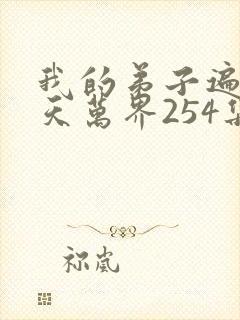 我的弟子遍
天萬界254集
祢嵐